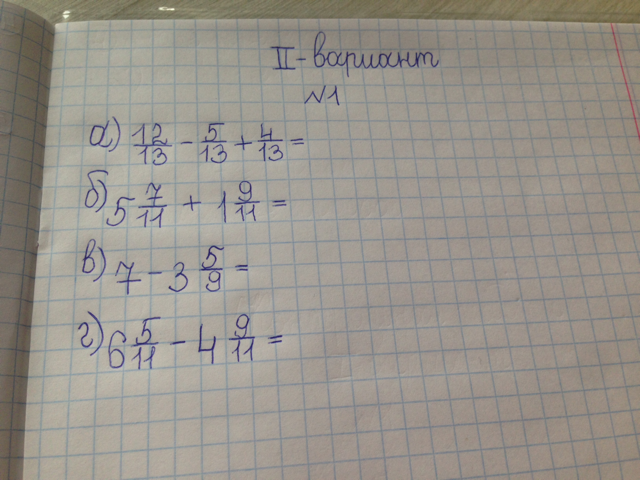 II-вариант
№1
а) 12/13 - 5/13 + 4/13 =
б) 5 7/11 + 1 9/11 =
в) 7 - 3 5/9 =
г) 6 5/11 - 4 9/11 =